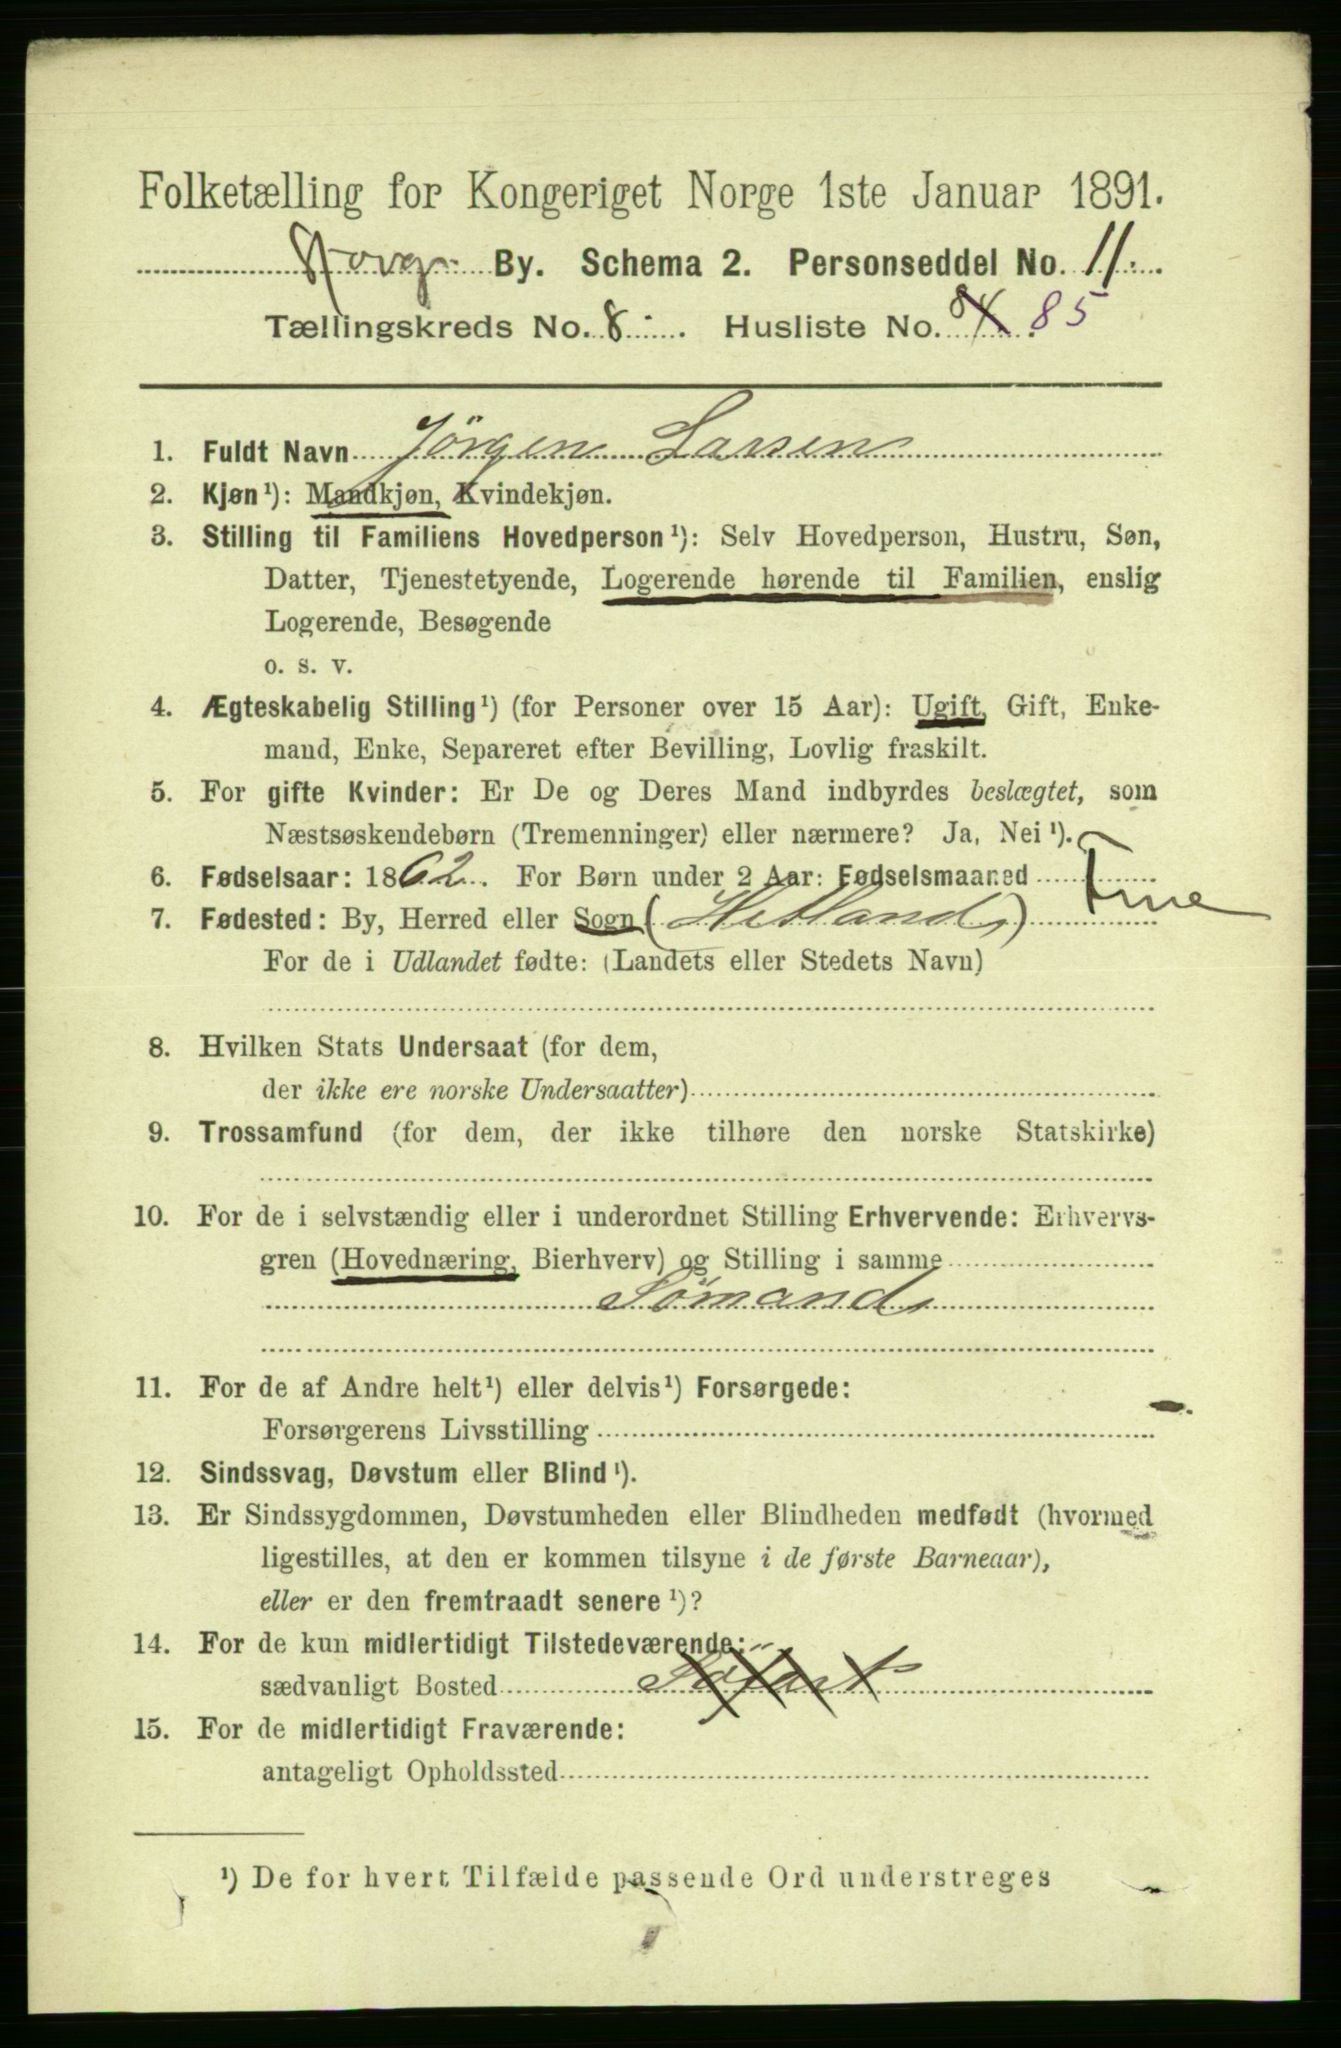 Folketælling for Kongeriget Norge 1ste Januar 1891.
By. Schema 2. Personseddel No. 11.
Tællingskreds No. 8. Husliste No. 84 85
1. Fuldt Navn Jörgen Larsen
2. Kjøn¹): Mandkjøn, Kvindekjøn.
3. Stilling til Familiens Hovedperson¹): Selv Hovedperson, Hustru, Søn,
Datter, Tjenestetyende, Logerende hørende til Familien, enslig
Logerende, Besøgende
o. s. v.
4. Ægteskabelig Stilling¹) (for Personer over 15 Aar): Ugift, Gift, Enke-
mand, Enke, Separeret efter Bevilling, Lovlig fraskilt.
5. For gifte Kvinder: Er De og Deres Mand indbyrdes beslægtet, som
Næstsøskendebørn (Tremenninger) eller nærmere? Ja, Nei¹).
6. Fødselsaar: 1862. For Børn under 2 Aar: Fødselsmaaned
7. Fødested: By, Herred eller Sogn (Hetland)
For de i Udlandet fødte: (Landets eller Stedets Navn)
8. Hvilken Stats Undersaat (for dem,
der ikke ere norske Undersaatter)
9. Trossamfund (for dem, der ikke tilhøre den norske Statskirke)
10. For de i selvstændig eller i underordnet Stilling Erhvervende: Erhvervs-
gren (Hovednæring, Bierhverv) og Stilling i samme
Sömand
11. For de af Andre helt¹) eller delvis¹) Forsørgede:
Forsørgerens Livsstilling
12. Sindssvag, Døvstum eller Blind¹).
13. Er Sindssygdommen, Døvstumheden eller Blindheden medfødt (hvormed
ligestilles, at den er kommen tilsyne i de første Barneaar),
eller er den fremtraadt senere¹)?
14. For de kun midlertidigt Tilstedeværende:
sædvanligt Bosted Söfart
15. For de midlertidigt Fraværende:
antageligt Opholdssted
¹) De for hvert Tilfælde passende Ord understreges